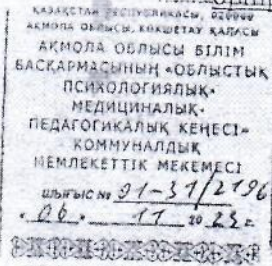 ҚАЗАҚСТАН РЕСПУБЛИКАСЫ, 020000
АҚМОЛА ОБЛЫСЫ, КӨКШЕТАУ ҚАЛАСЫ
АҚМОЛА ОБЛЫСЫ БІЛІМ
БАСҚАРМАСЫНЫҢ «ОБЛЫСТЫҚ
ПСИХОЛОГИЯЛЫҚ-
МЕДИЦИНАЛЫҚ-
ПЕДАГОГИКАЛЫҚ КЕҢЕСІ»
КОММУНАЛДЫҚ
МЕМЛЕКЕТТІК МЕКЕМЕСІ
ШЫҒЫС № 01-31/2196
«06» 11 2023 г.